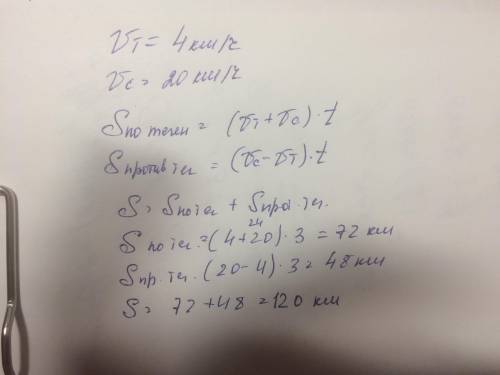 Vт = 4 км/ч
Vс = 20 км/ч
S по течен = (Vт + Vс) · t
S против теч = (Vс - Vт) · t
S = S по теч + S прот. теч.
24
S по теч. = (4+20) · 3 = 72 км
S пр. теч. (20-4) · 3 = 48 км
S = 72 + 48 = 120 км